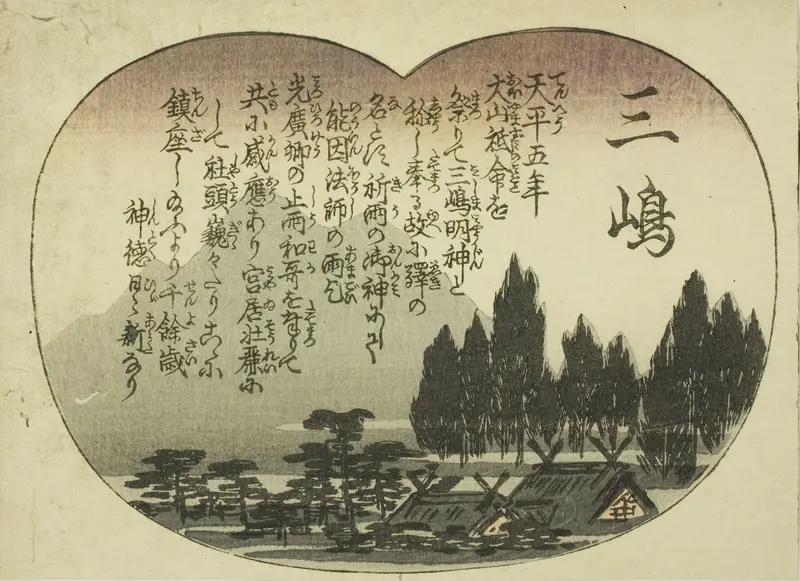 三嶋
天平五年
大山祗命を
祭りて三嶋明神と
称し奉る故に驛の
名とす祈雨の御神にして
能因法師の雨乞
光廣卿の止雨和哥を奉りて
共に感應あり宮居壮麗に
して社頭巍々たりこゝに
鎮座し給ふより千餘歳
神徳日々新なり